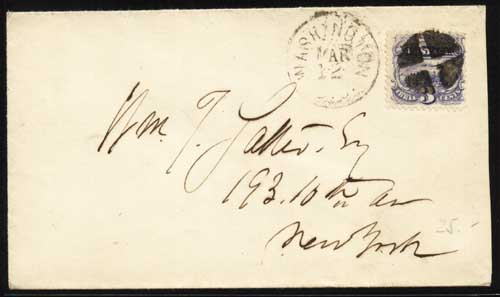 WASHINGTON
MAR
12
THREE 3 CENTS
Wm. T. , Esq
193. 10th av
New York
25.-